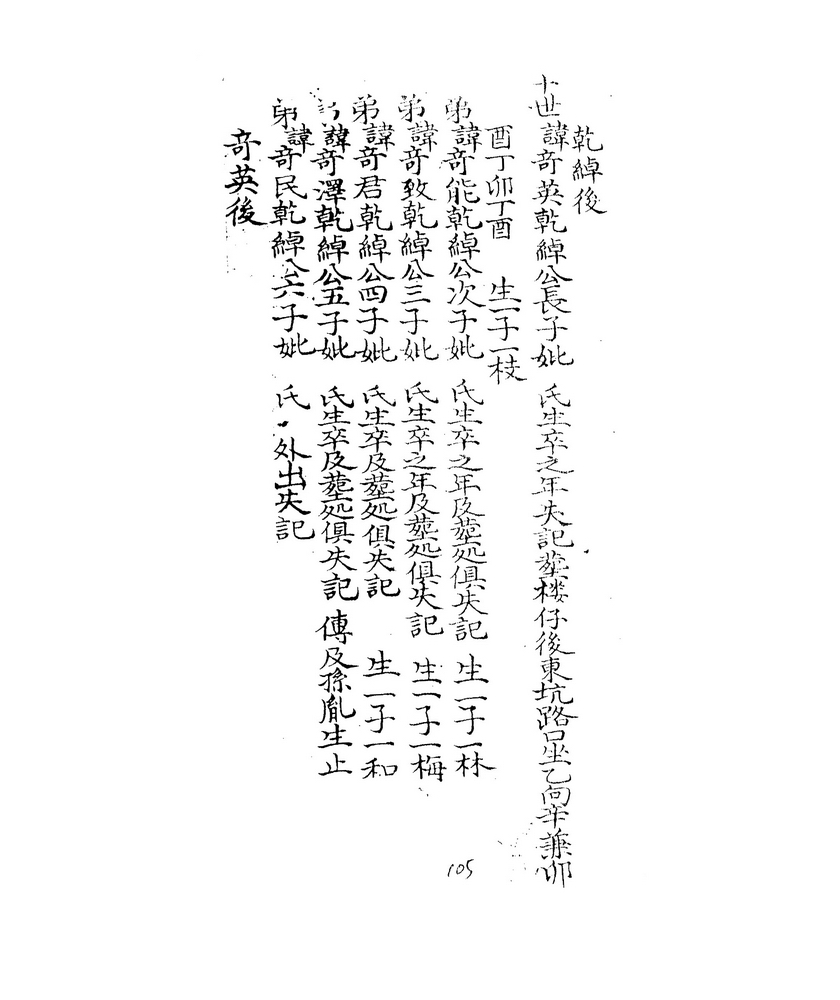 乾綽後
十世諱奇英乾綽公長子妣 氏生卒之年失記塟楼仔後東坑路口坐乙向辛兼卯
酉丁卯丁酉 生一子一枝
弟諱奇能乾綽公次子妣 氏生卒之年及塟处俱失記 生一子一林
弟諱奇致乾綽公三子妣 氏生卒之年及塟处俱失記 生一子一梅
弟諱奇君乾綽公四子妣 氏生卒及塟处俱失記 生一子一和
諱奇澤乾綽公五子妣 氏生卒及塟处俱失記 傳及孫胤生止
弟諱奇民乾綽公六子妣 氏 外出失記
奇英後
105